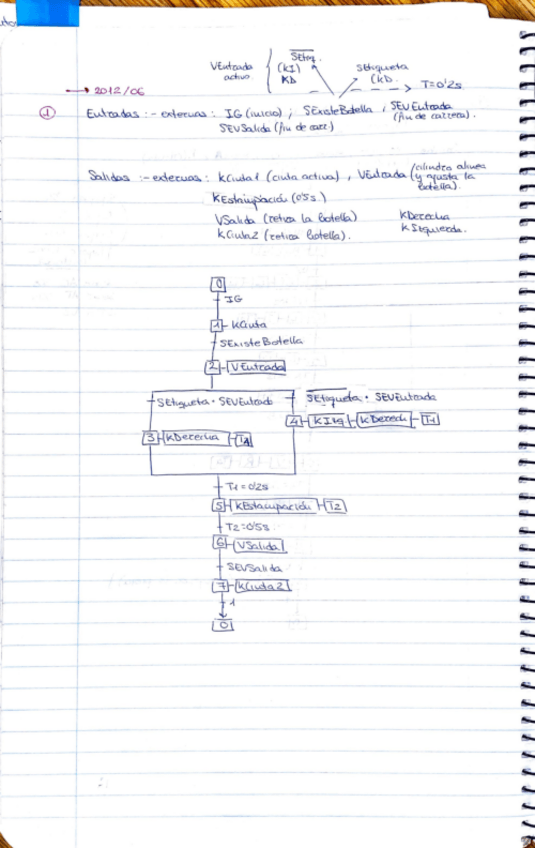 SEtiq.
VEntrada (KI) SEtiqueta
activo. KD (KD. T=0'2s
→ 2012/06
① Entradas: - externas: IG (inicio); SExisteBotella, SEVEntrada (fin de carrera).
SEVSalida (fin de carr.)
Salidas: - externas: KCinta1 (cinta activa), VEntrada (cilindro alinea y ajusta la botella).
KEstampación (0'5s.)
VSalida (retira la botella) KDerecha
KCinta2 (retira botella). KIzquierda.
0
IG
1 KCinta
SExisteBotella
2 VEntrada
SEtiqueta · SEVEntrada SEtiqueta · SEVEntrada
4 KIzq KDerech T1
3 KDerecha T1
T1=0'2s
5 KEstampación T2
T2=0'5s
6 VSalida
SEVSalida
7 KCinta2
1
0